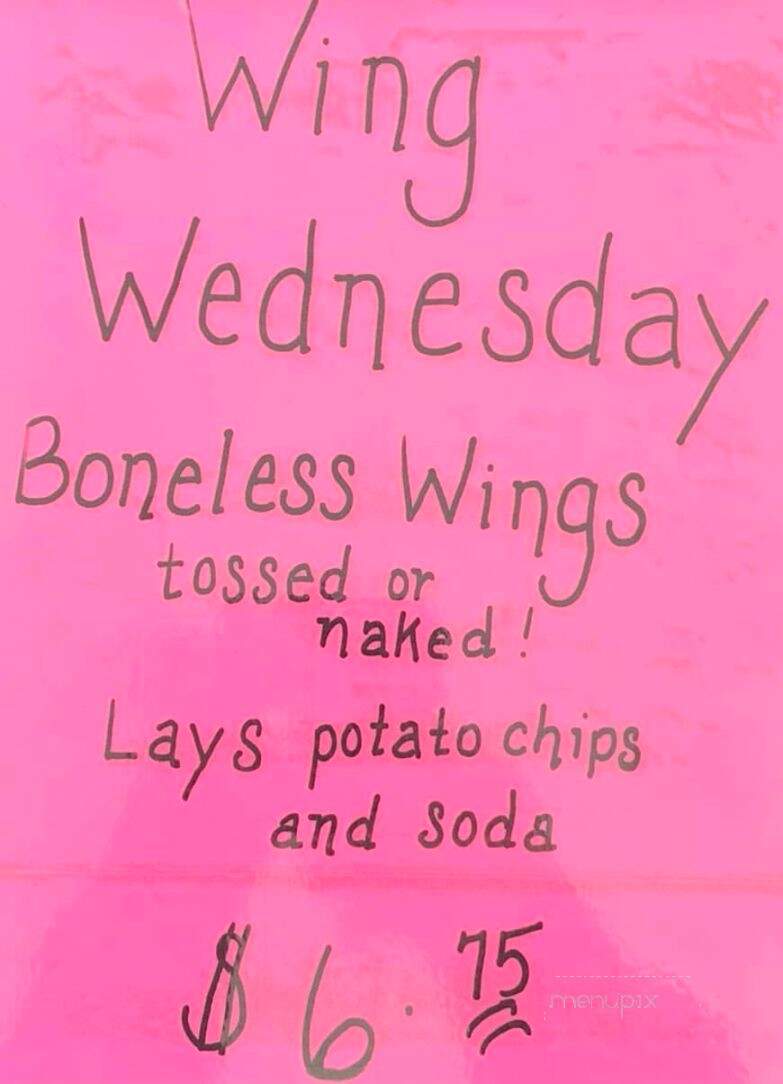 Wing
Wednesday
Boneless Wings
tossed or
naked!
Lays potato chips
and soda
$6.75
menupix